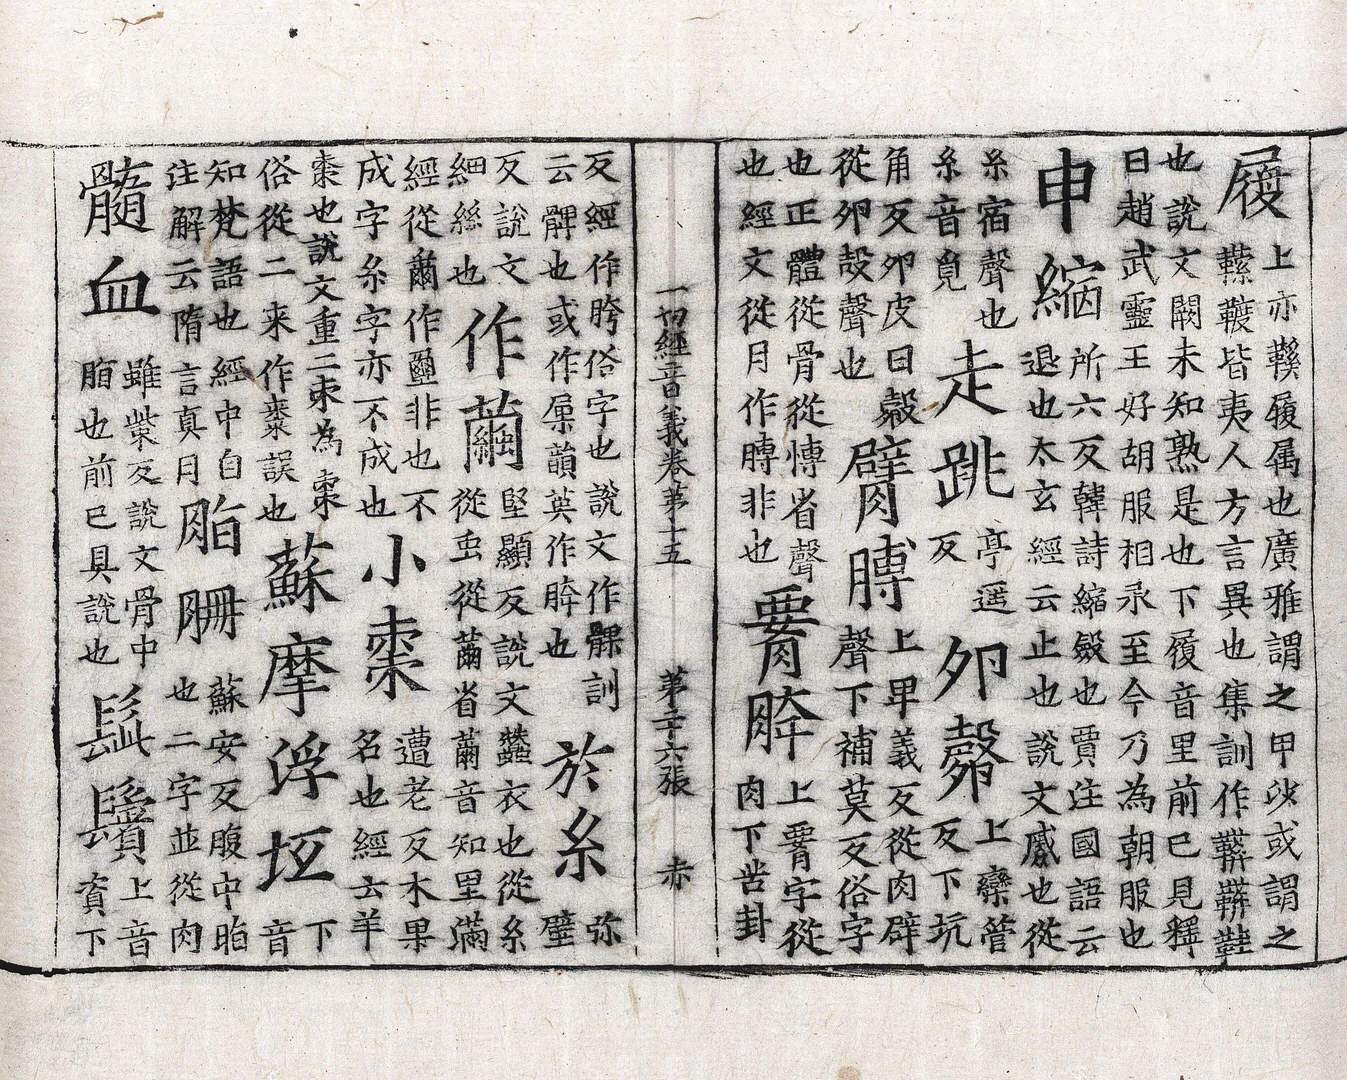 履
上亦鞵履属也廣雅謂之甲沙或謂之
皆夷人方言異也集訓作
也說文闕未知熟是也下履音里前已見釋
曰趙武靈王好胡服相承至今乃為朝服也
申縮
所六反韓詩縮斂也賈注國語云
退也太玄經云止也說文蹙也從
糸宿聲也
糸音覓
走跳
亭遥
反
卵㲉
上欒管
反下坑
角反卵皮曰㲉
從卵㱿聲也
臂膊
上卑義反從肉辟
聲下補莫反俗字
也正體從骨從慱省聲
也經文從月作膞非也
𦝫胯
上𦝫字從
肉下苦卦
一切經音義卷第十五 第二十六張 赤
反經作胯俗字也說文作髁訓
云髀也或作𡱰韻英作胯也
於糸
弥
壁
反說文
細絲也
作繭
堅顯反說文蠶衣也從糸
從虫從𦭰省𦭰音知里滿
經從𦭰作壐非也不
成字糸字亦不成也
小棗
遭老反木果
名也經云羊
棗也說文重二朿為棗
俗從二来作棗誤也
蘇摩浮坻
下
音
知梵語也經中自
注解云隋言真月
脂𦙱
蘇安反腹中脂
也二字並從肉
髓血
雖紫反說文骨中
脂也前已具說也
髭鬢
上音
資下